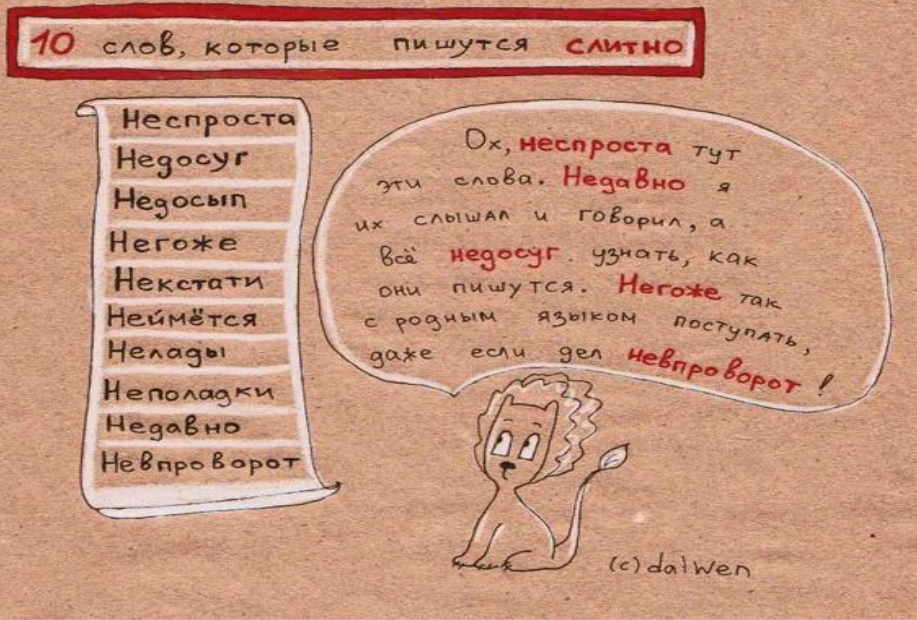 10 слов, которые пишутся слитно
Неспроста
Недосуг
Недосып
Негоже
Некстати
Неймётся
Нелады
Неполадки
Недавно
Невпроворот
Ох, неспроста тут
эти слова. Недавно я
их слышал и говорил, а
всё недосуг узнать, как
они пишутся. Негоже так
с родным языком поступать,
даже если дел невпроворот!
(c) dalwen